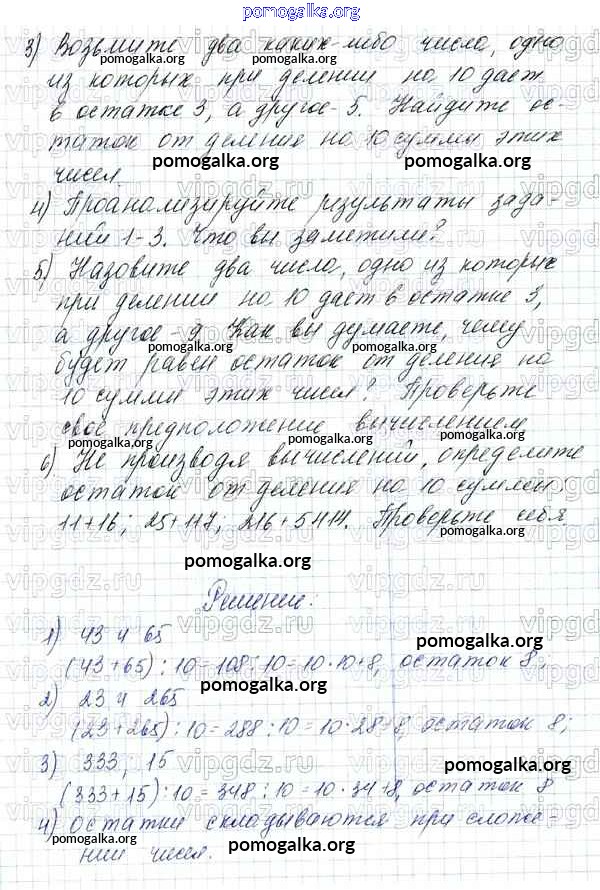 pomogalka.org
3) Возьмите два каких-либо числа, одно
из которых при делении на 10 дает
в остатке 3, а другое - 5. Найдите ос-
таток от деления на 10 суммы этих
чисел.
pomogalka.org pomogalka.org
4) Проанализируйте результаты зада-
ний 1-3. Что вы заметили?
pomogalka.org
5) Назовите два числа, одно из которых
при делении на 10 дает в остатке 3,
а другое - 9. Как вы думаете, чему
pomogalka.org pomogalka.org
будет равен остаток от деления на
10 суммы этих чисел? Проверьте
свое предположение вычислением
pomogalka.org pomogalka.org
6) Не производя вычислений, определите
остаток от деления на 10 суммы:
11+16; 25+117; 216+5414. Проверьте себя
pomogalka.org
Решение:
1) 43 и 65
pomogalka.org
(43+65):10=108:10=10·10+8, остаток 8;
2) 23 и 265
pomogalka.org
(23+265):10=288:10=10·28+8, остаток 8;
3) 333; 15
pomogalka.org
(333+15):10=348:10=10·34+8, остаток 8
4) остатки складываются при сложе-
нии чисел.
pomogalka.org